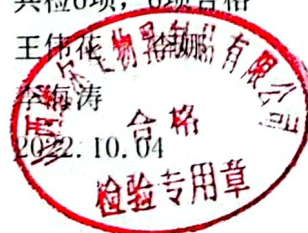 共检6项，6项合格
王伟花
李海涛
2022.10.04
生物乳制品有限公司
合格
检验专用章